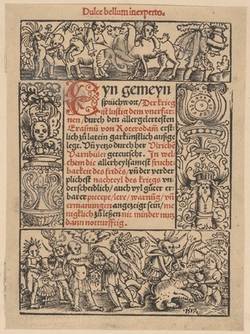 Dulce bellum inexperto.
Eyn gemeyn
sprüchwort/Der krieg
ist lustig dem vnerfar-
nen, durch den allergelertesten
Erasmū von Roterodam erst-
lich zu latein gar künstlich außge-
legt. Vn yetzo durch hor Vlriche
Varnbuler geteutscht. In wel-
chem die allerheylsamest frucht
barkeit des frides, vn der verder
plichest nachteyl des kriegs vn
derscheydlich/auch vyl guter er-
barer precepte/lere/warnūg/vn
ermanungen angezeigt sein/me
nigklich zu lesen nit minder nutz
dann notturfftig.
1519